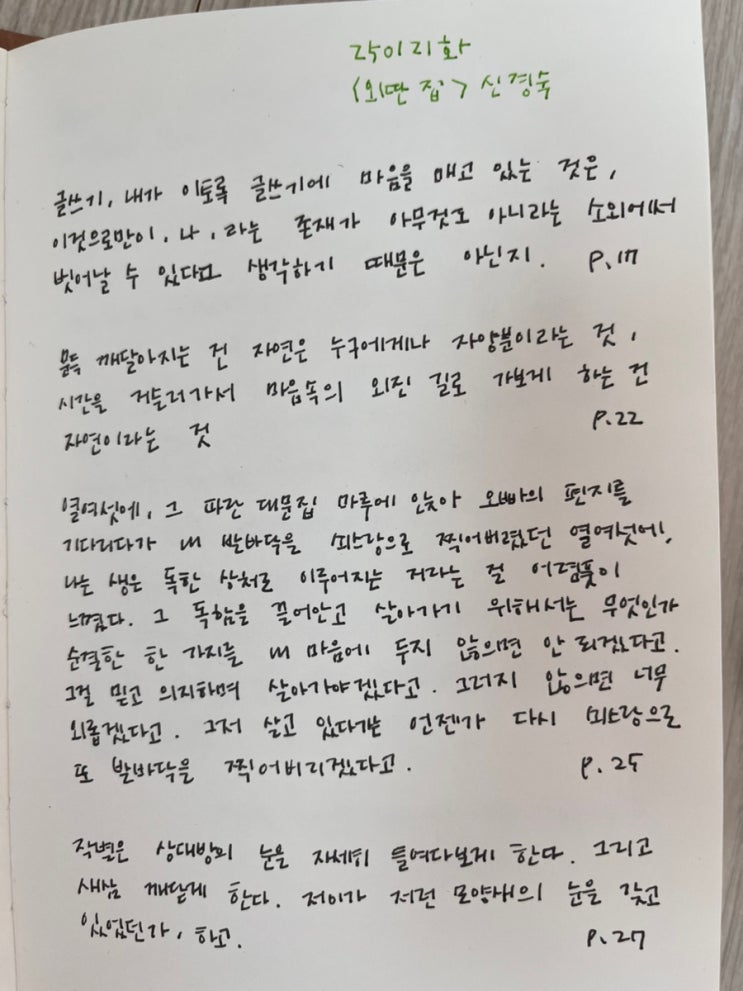 라이리화
<외딴 집> 신경숙
글쓰기, 내가 이토록 글쓰기에 마음을 매고 있는 것은,
이것으로만이, 나, 라는 존재가 아무것도 아니라는 소외에서
벗어날 수 있다고 생각하기 때문은 아닌지. P.17
문득 깨달아지는 건 자연은 누구에게나 자양분이라는 것,
시간을 거슬러가서 마음속의 외진 길로 가보게 하는 건
자연이라는 것 P.22
열여섯에, 그 파란 대문집 마루에 앉아 오빠의 편지를
기다리다가 내 발바닥을 쇠스랑으로 찍어버렸던 열여섯에,
나는 생은 독한 상처로 이루어지는 거라는 걸 어렴풋이
느꼈다. 그 독함을 끌어안고 살아가기 위해서는 무엇인가
순결한 한 가지를 내 마음에 두지 않으면 안 되겠다고.
그걸 믿고 의지하며 살아가야겠다고. 그러지 않으면 너무
외롭겠다고. 그저 살고 있다가는 언젠가 다시 쇠스랑으로
또 발바닥을 찍어버리겠다고. P.25
작별은 상대방의 눈을 자세히 들여다보게 한다. 그리고
새삼 깨닫게 한다. 저이가 저런 모양새의 눈을 갖고
있었던가, 하고. P.27